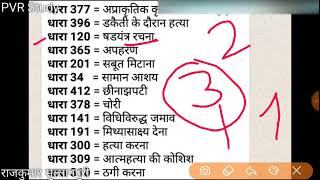 PVR Study
धारा 377 = अप्राकृतिक कृ
धारा 396 = डकैती के दौरान हत्या
धारा 120 = षडयंत्र रचना
धारा 365 = अपहरण
धारा 201 = सबूत मिटाना
धारा 34 = सामान आशय
धारा 412 = छीनाझपटी
धारा 378 = चोरी
धारा 141 = विधिविरुद्ध जमाव
धारा 191 = मिथ्यासाक्ष्य देना
धारा 300 = हत्या करना
धारा 309 = आत्महत्या की कोशिश
= ठगी करना
राजकुमार
2
3
1